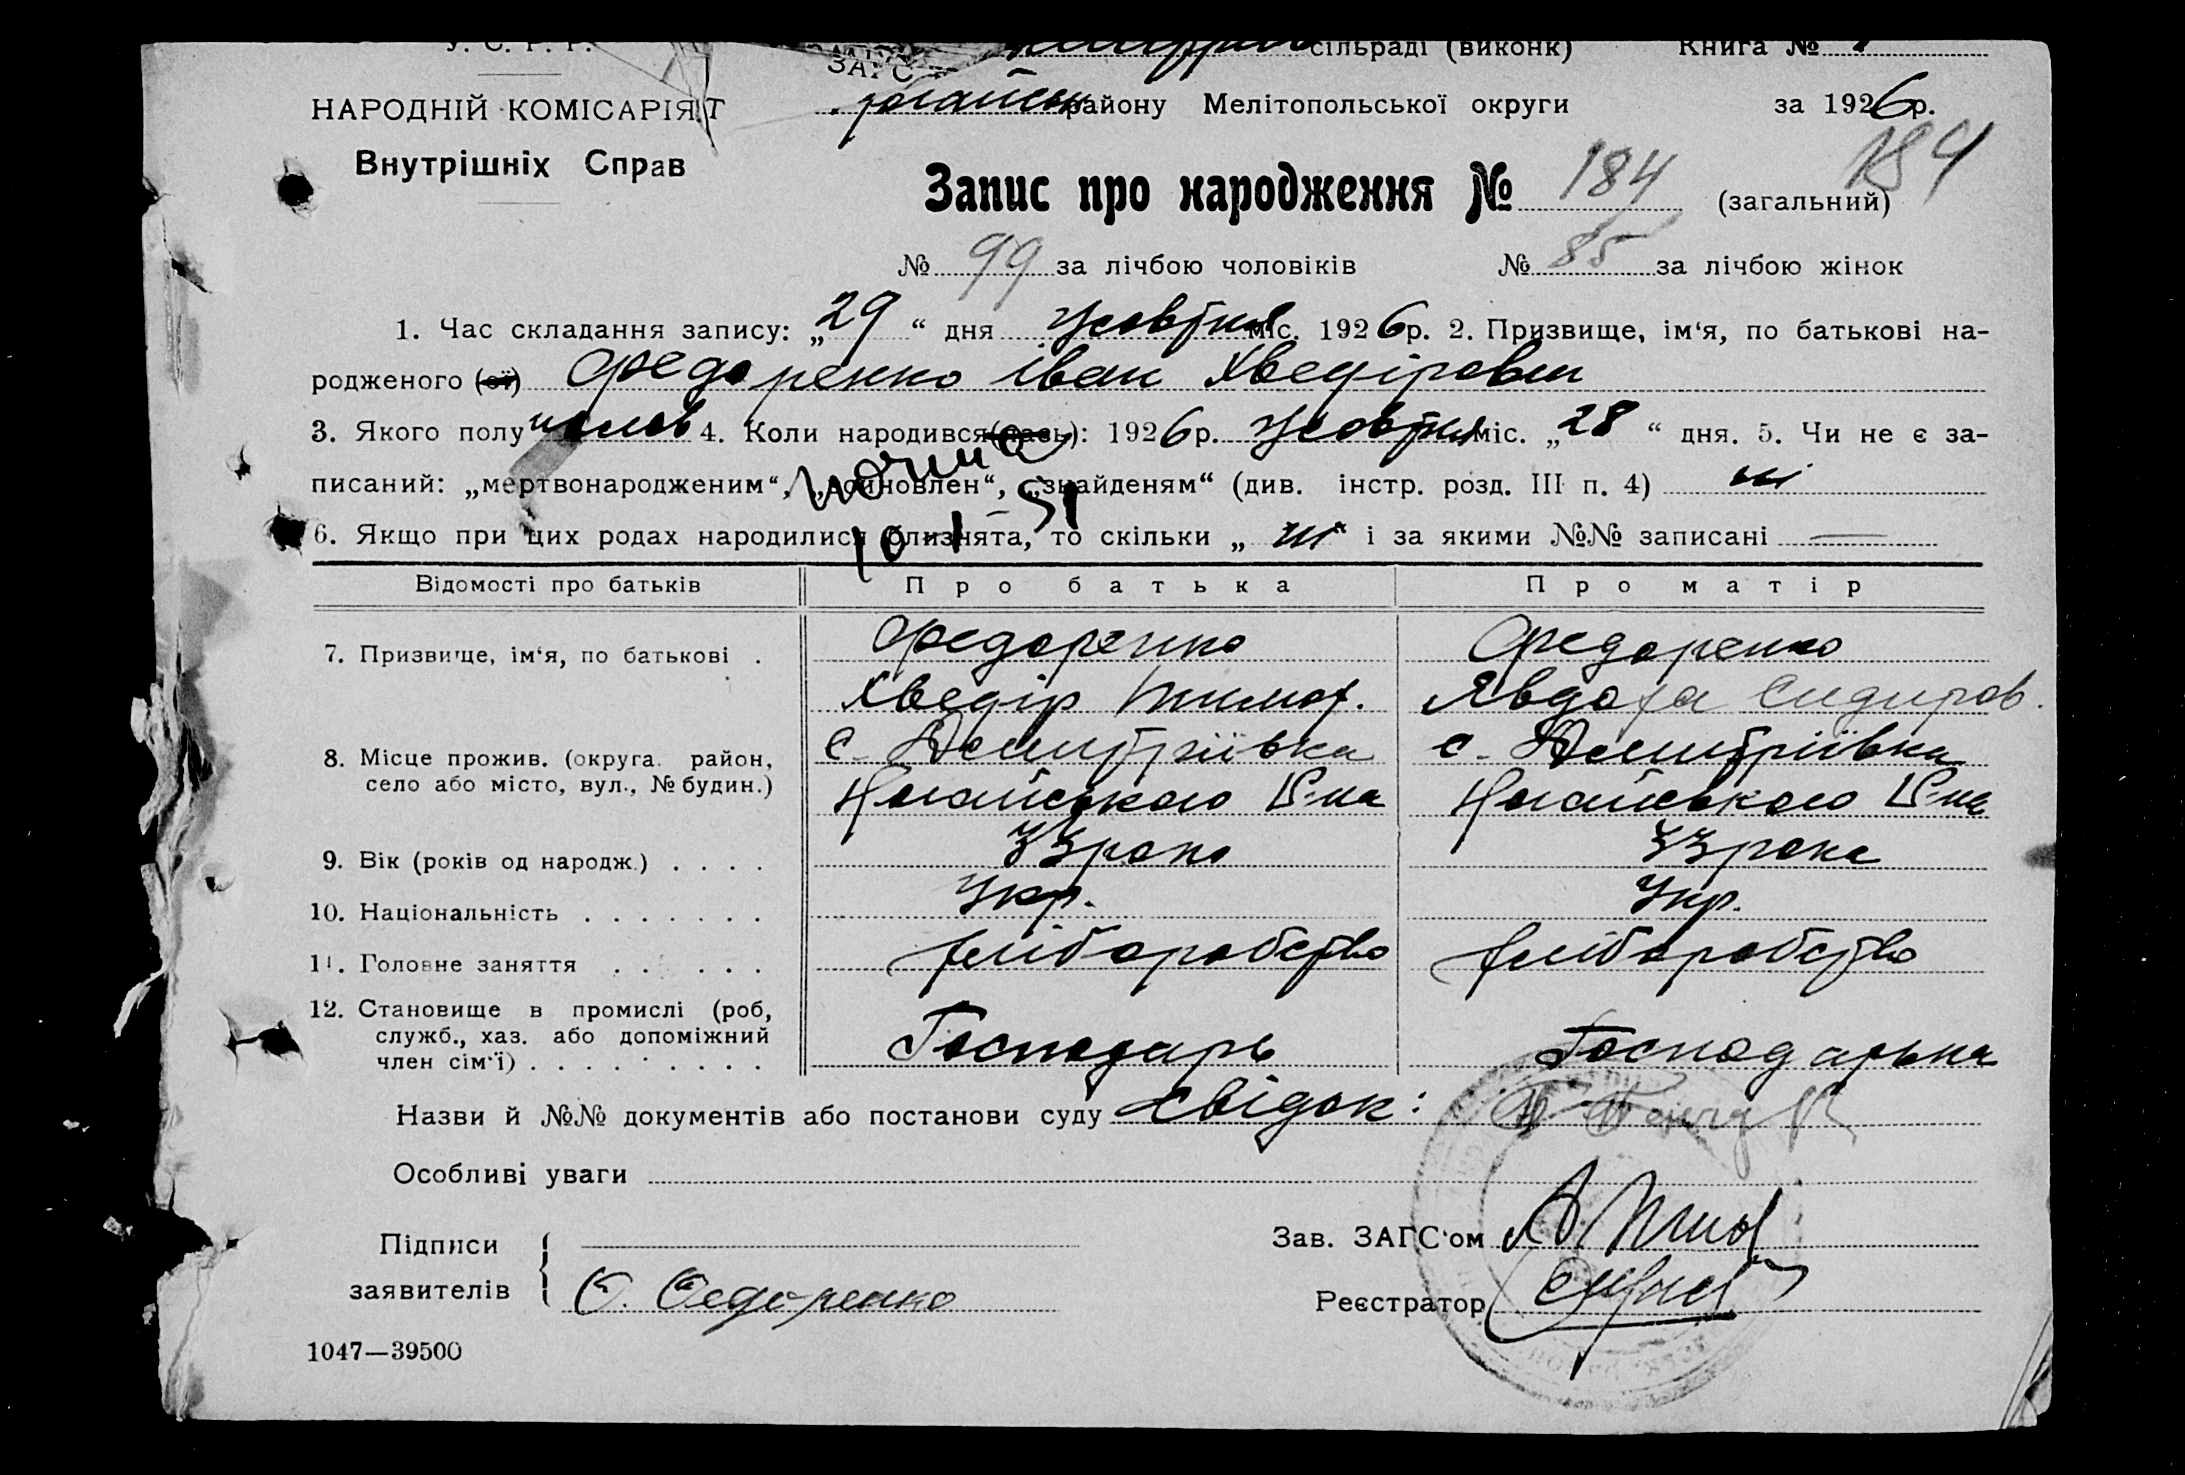 У. С. Р. Р.
ЗАГС сільраді (виконк) Книга №
НАРОДНІЙ КОМІСАРІЯТ району Мелітопольської округи за 1926 р.
Внутрішніх Справ
Запис про народження № 184 (загальний) 184
№ 99 за лічбою чоловіків № 85 за лічбою жінок
1. Час складання запису: „29“ дня Жовтня міс. 1926 р. 2. Призвище, ім‘я, по батькові на-
родженого (ої) Федоренко Іван Хведірович
3. Якого полу чолов 4. Коли народився (лась): 1926 р. Жовтня міс. „28“ дня. 5. Чи не є за-
писаний: „мертвонародженим“, „воиновлен“, „знайденям“ (див. інстр. розд. III п. 4) ні
6. Якщо при цих родах народилися близнята, то скільки „ні“ і за якими №№ записані —
Відомості про батьків Про батька Про матір
7. Призвище, ім‘я, по батькові . Федоренко Федоренко
Хведір Тимоф. Явдоха Сидиров.
8. Місце прожив. (округа. район, село або місто, вул., № будин.) с. Дмитріївка с. Дмитріївка
Ногайського Р-на Ногайського Р-на
9. Вік (років од народж.) . . . . 33 роки 33 роки
10. Національність . . . . . . . Укр. Укр.
11. Головне заняття . . . . . . хліборобство хліборобство
12. Становище в промислі (роб, служб., хаз. або допоміжний член сім‘ї) . . . . . . . . Господарь Господарька
Назви й №№ документів або постанови суду Свідок:
Особливі уваги
Підписи Зав. ЗАГС‘ом
заявителів Федоренко Реєстратор
1047—39500